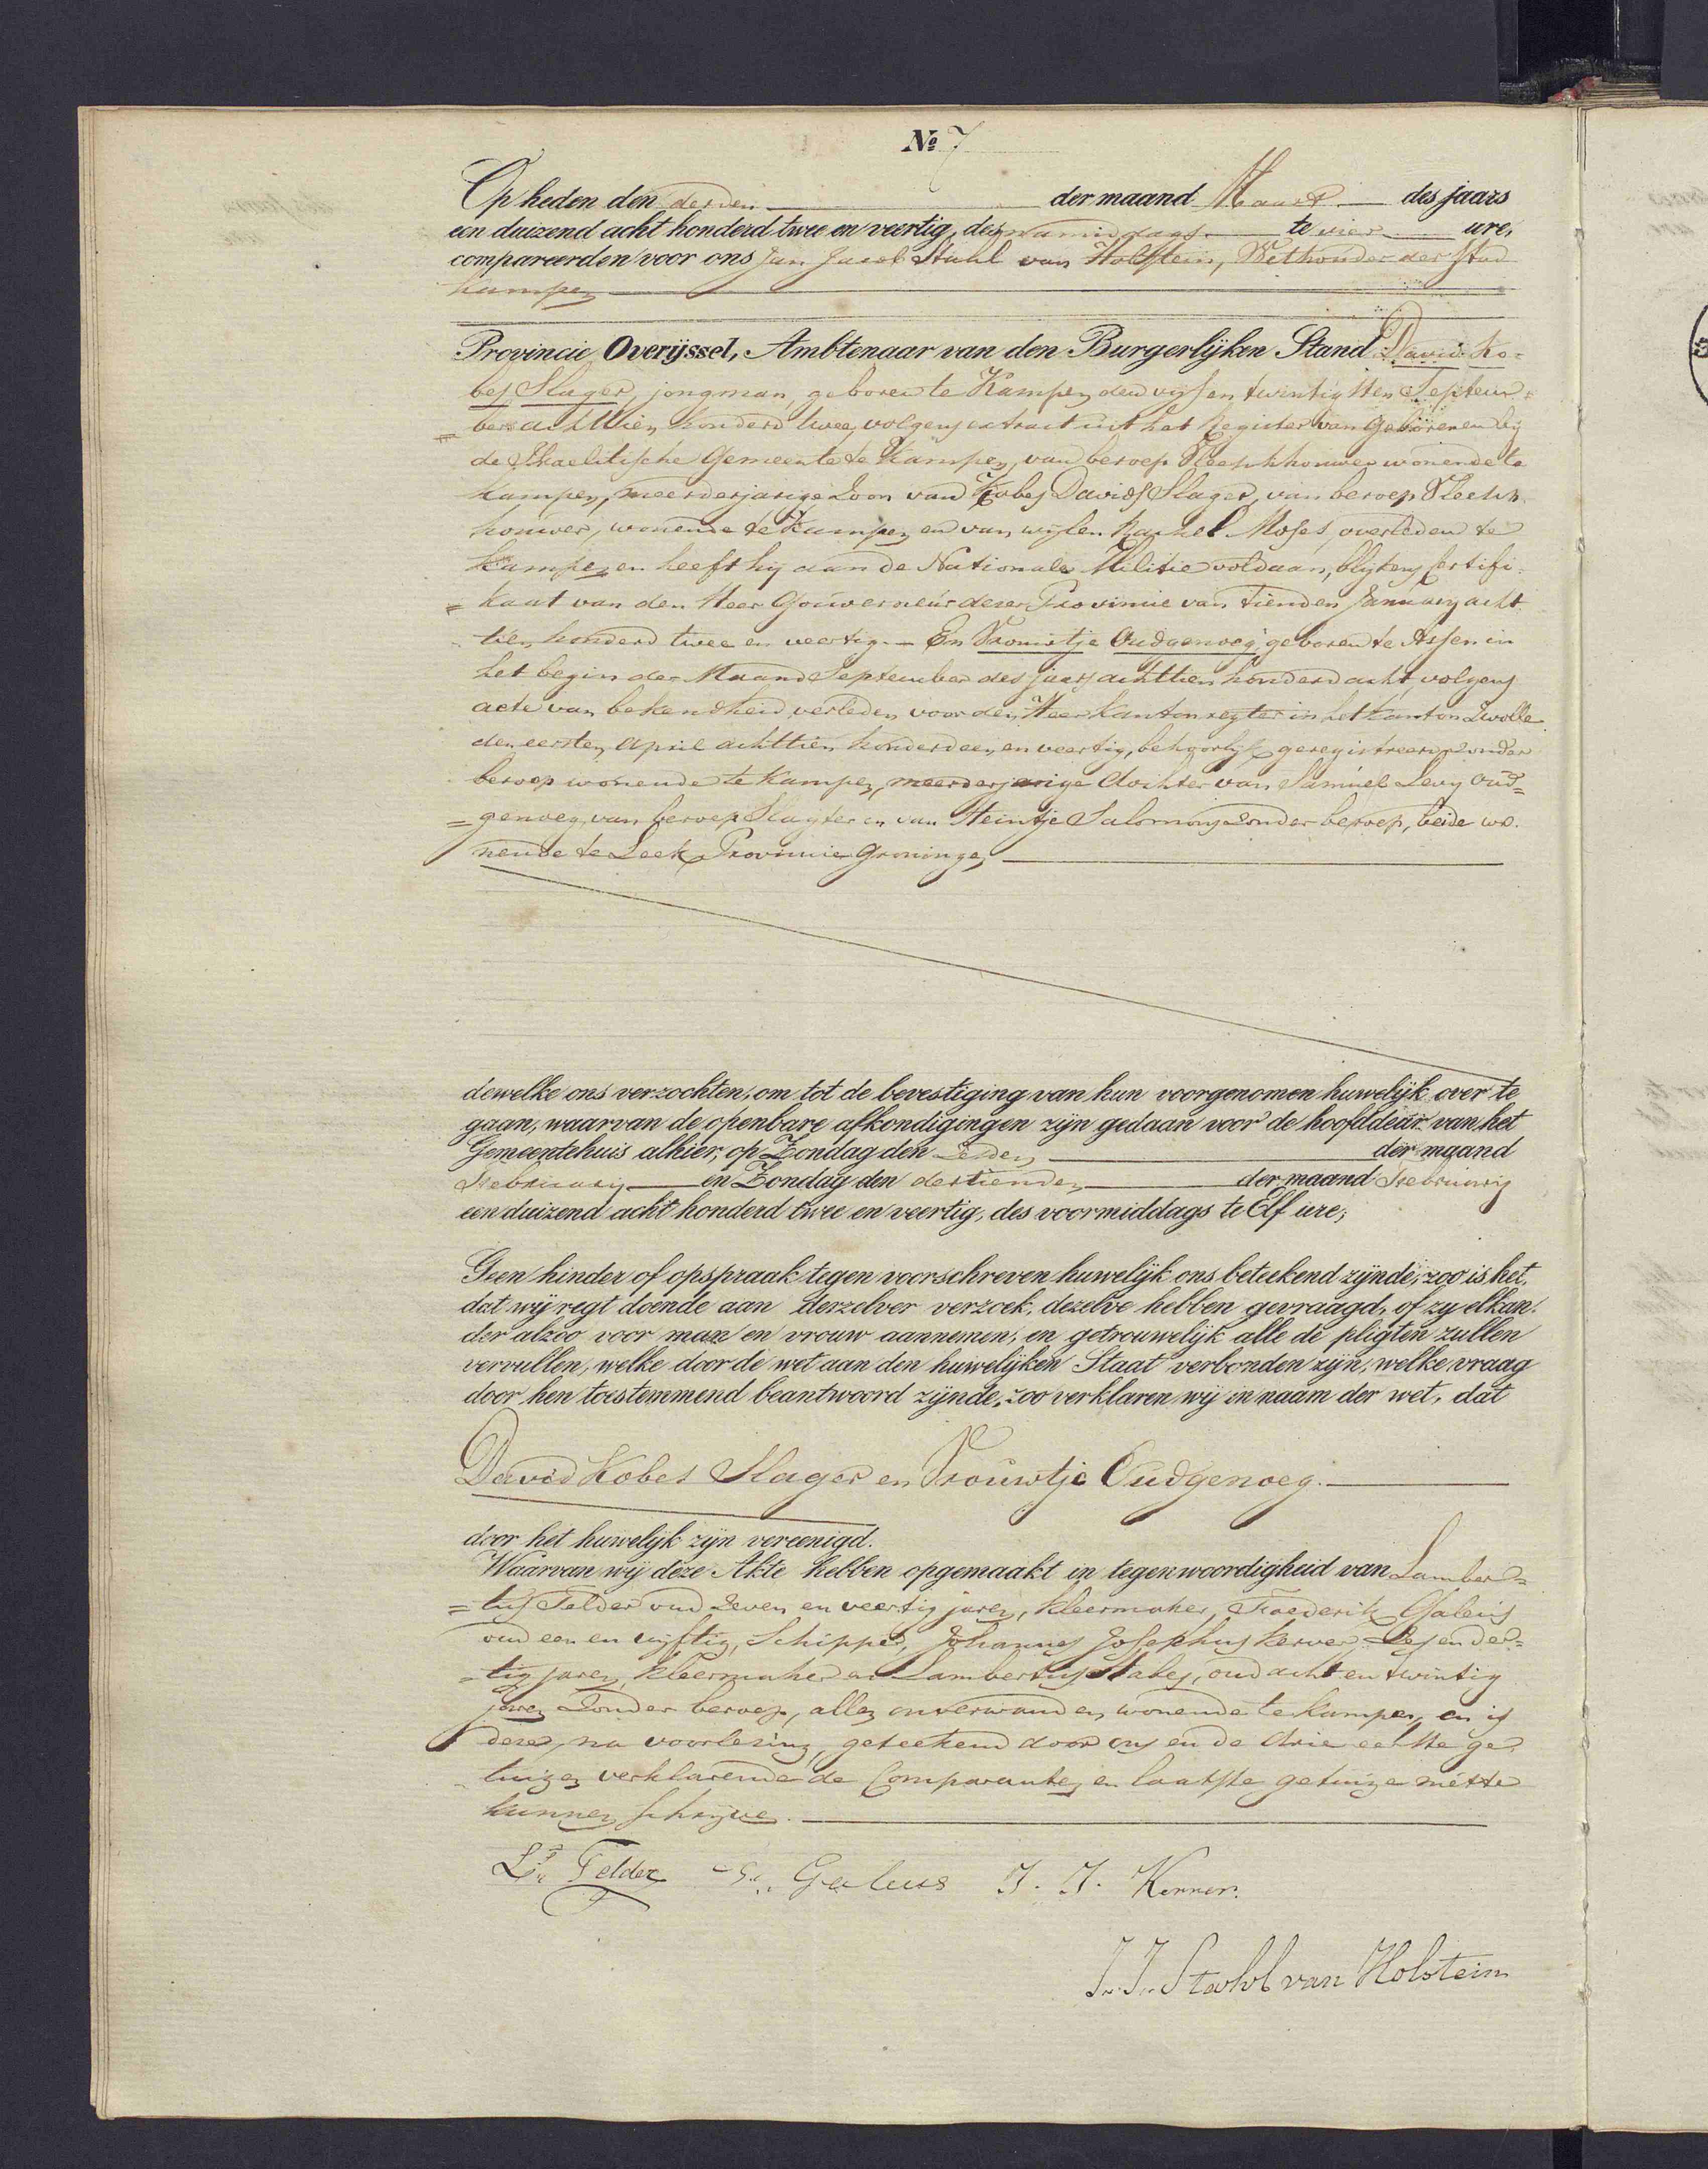 No 7
Op heden den derden der maand Maart des jaars
een duizend acht honderd twee en veertig, des namiddags te vier ure,
compareerden voor ons Jan Jacob Stahl van Holstein, Wethouder der Stad
Kampen
Provincie Overijssel, Ambtenaar van den Burgerlijken Stand David Ko-
bes Slager, jongman, geboren te Kampen den vijf en twintigsten Septem-
= ber achttien honderd twee, volgens extract uit het Register van Geborenen bij
de Israelitische Gemeente te Kampen, van beroep Vleeschhouwer wonende te
Kampen, meerderjarige Zoon van Kobes Davids Slager, van beroep Vleesch-
houwer, wonende te Kampen en van wijlen Rachel Moses, overleden te
Kampen en heeft hij aan de Nationale Militie voldaan, blijkens Certifi-
= kaat van den Heer Gouverneur dezer Provincie van tienden January acht
tien honderd twee en veertig. – En Vrouwtje Oudgenoeg geboren te Assen in
het begin der Maand September des jaars achttien honderd acht, volgens
acte van bekendheid, verleden voor den Heer Kantonregter in het Kanton Zwolle
den eersten April achttien honderd een en veertig, behoorlijk geregistreerd, zonder
beroep wonende te Kampen, meerderjarige dochter van Samuel Levy Oud=
= genoeg, van beroep Slagter en van Heintje Salomons zonder beroep, beide wo-
nende te Leek Provincie Groningen
dewelke ons verzochten, om tot de bevestiging van hun voorgenomen huwelijk over te
gaan, waarvan de openbare afkondigingen zijn gedaan voor de hoofddeur van het
Gemeentehuis alhier, op Zondag den zesden der maand
February en Zondag den dertienden der maand February
een duizend acht honderd twee en veertig, des voormiddags te Elf ure;
Geen hinder of opspraak tegen voorschreven huwelijk ons beteekend zijnde, zoo is het,
dat wij regt doende aan derzelver verzoek, dezelve hebben gevraagd, of zy elkan-
der alzoo voor man en vrouw aannemen, en getrouwelijk alle de pligten zullen
vervullen, welke door de wet aan den huwelijken Staat verbonden zijn, welke vraag
door hen toestemmend beantwoord zijnde, zoo verklaren wij in naam der wet, dat
David Kobes Slager en Vrouwtje Oudgenoeg.
door het huwelijk zijn vereenigd.
Waarvan wij deze Akte hebben opgemaakt in tegenwoordigheid van Lamber=
= tus Felder oud Zeven en veertig jaren, kleermaker, Frederik Galeus
oud een en vijftig, Schipper, Johannes Josephus Kerver Zes en der=
= tig jaren, kleermaker en Lambertus Stabes, oud acht en twintig
jaren Zonder beroep, allen onverwand en wonende te Kampen, en is
deze, na voorlezing, geteekend door ons en de drie eerste ge-
tuigen verklarende de Comparanten en laatste getuige niet te
kunnen schrijven.
Ls. Felder F. Galeus J. J. Kerver.
J. J. Stahl van Holstein